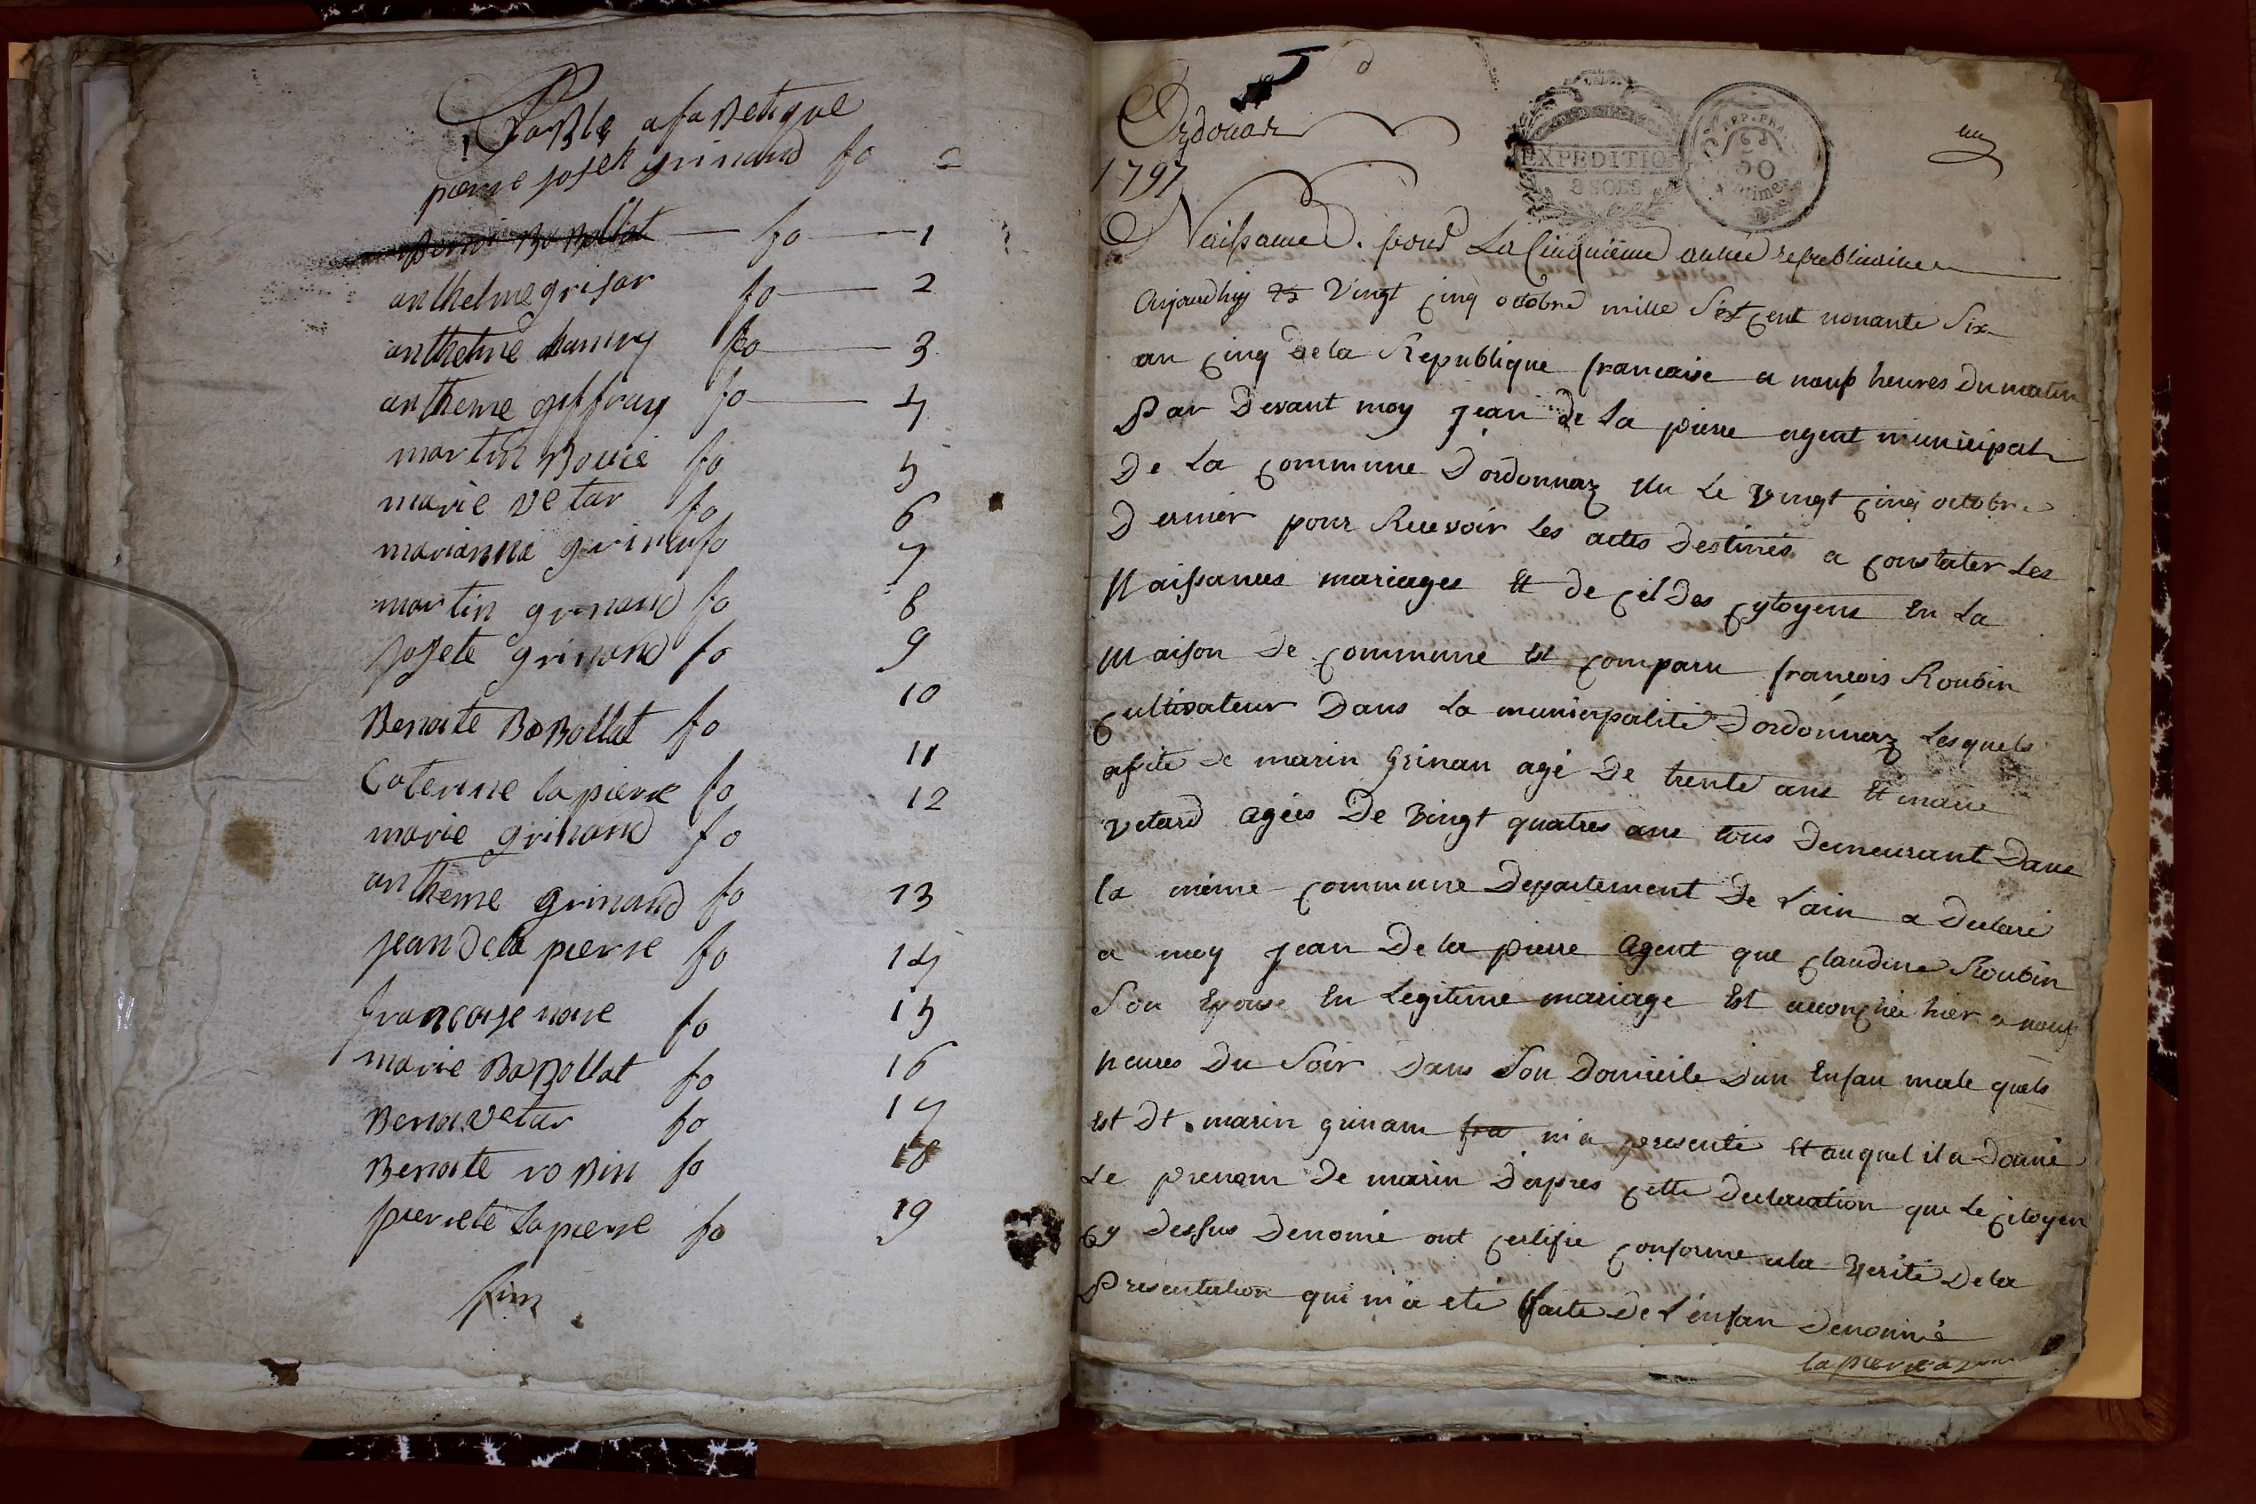 Table afabetique
pierre josek grinand fo 2
Benoi Bo Bollat fo 1
anthelme grisar fo 2
anthelme fo 3
antheme geffray fo 4
martin Bovie fo 5
marie vetar fo 6
marianne grinan fo 7
martin grinand fo 8
josete grinand fo 9
Benoite Bo Bollat fo 10
Caterine la pierre fo 11
marie grinand fo 12
antheme grinand fo 13
jean de la pierre fo 14
francoise fo 15
marie Bo Bollat fo 16
Benoi vetar fo 17
Benoite ro Bin fo 18
pierrete la pierre fo 19
fin
Ordonaz
1797
EXPEDITION
8 SOLS
REP. FRA.
50
centimes
un
Naissance. pour La Cinquieme année republicaine
Aujourdhuy 25 Vingt cinq octobre mille Sept cent nonante Six
an cinq de la Republique francaise a neuf heures Du matin
Par Devant moy jean de la pierre agent municipal
De La commune D'ordonnaz élu Le vingt cinq octobre
Dernier pour Recevoir Les actes Destinés a constater Les
Naissances mariages Et de cel Des cytoyens En La
maison de commune Est comparu francois Roubin
cultivateur Dans La municipalité D'ordonnaz Lesquels
de marin Grinan agé De trente ans Et marie
vetard agées De vingt quatres ans tous Demeurant Dans
la même commune Departement De L'ain a Declaré
a moy jean De la pierre agent que claudine Roubin
Son Epouse En Legitime mariage Est accouchée hier a neuf
heures Du Soir Dans Son Domicile D'un Enfan male quels
Est Dt. marin grinam fra m'a presenté Et auquel il a Donné
Le prenom De marin D'apres cette Declaration que Le citoyen
cy Dessus Denomé ont certifié conforme a la verité De la
Presentation qui m'a eté faite De L'enfan Denommé
la pierre